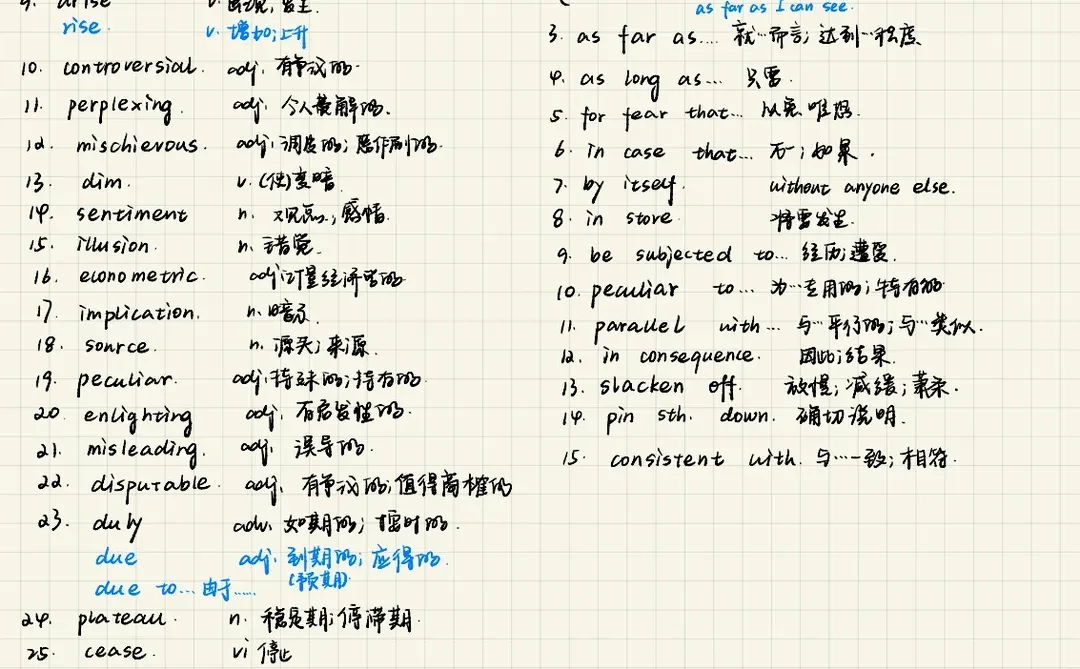 9. arise v. 出现；发生.
rise. v. 增加；上升
10. controversial. adj. 有争议的.
11. perplexing. adj. 令人费解的.
12. mischievous. adj. 调皮的；恶作剧的.
13. dim. v. (使)变暗.
14. sentiment n. 观点；感情.
15. illusion. n. 错觉.
16. econometric. adj. 计量经济学的
17. implication. n. 暗示.
18. source. n. 源头；来源.
19. peculiar. adj. 特殊的；特有的.
20. enlighting adj. 有启发性的.
21. misleading. adj. 误导的.
22. disputable. adj. 有争议的；值得商榷的
23. duly adv. 如期的；按时的.
due adj. 到期的；应得的.
(预期)
due to... 由于......
24. plateau. n. 稳定期；停滞期.
25. cease. vi 停止
as far as I can see.
3. as far as.... 就…而言；达到…程度
4. as long as... 只要.
5. for fear that... 以免 唯恐.
6. in case that... 万一；如果.
7. by itself. without anyone else.
8. in store. 将要发生.
9. be subjected to... 经历；遭受.
10. peculiar to... 为…专用的；特有的
11. parallel with... 与…平行的；与…类似.
12. in consequence. 因此；结果.
13. slacken off. 放慢；减缓；萧条.
14. pin sth. down. 确切说明.
15. consistent with. 与…一致；相符.